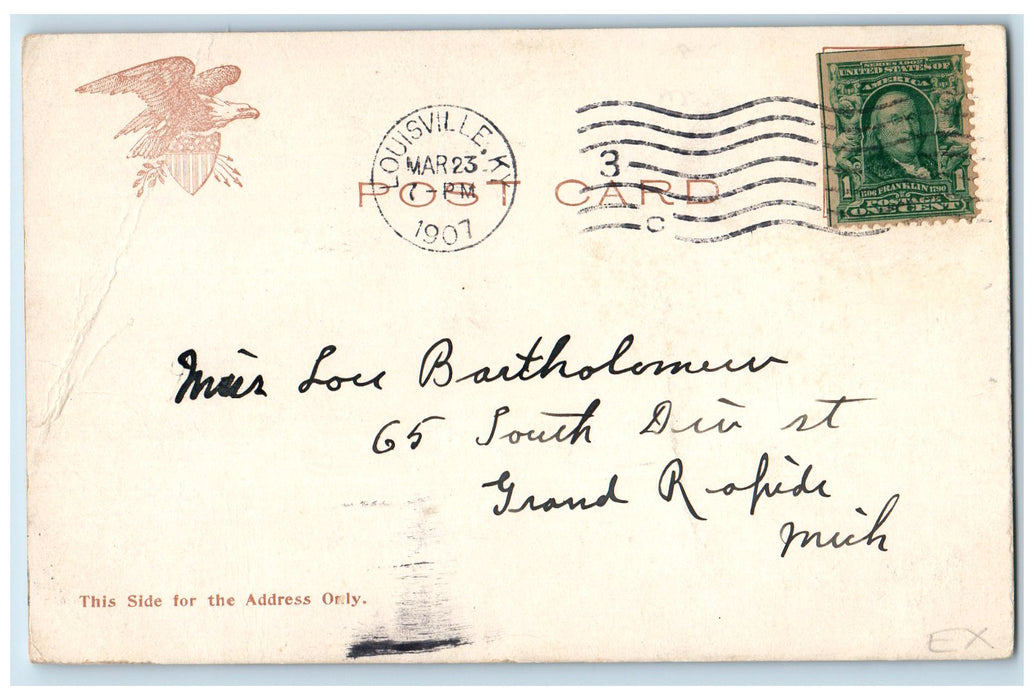 LOUISVILLE, KY
MAR 23
7 - PM
1907
3
C
POST CARD
SERIES 1902
UNITED STATES OF
AMERICA
1 1706 FRANKLIN 1790 1
POSTAGE
ONE CENT
Miss Lou Bartholomew
65 South Div st
Grand Rapids
Mich
This Side for the Address Only.
EX